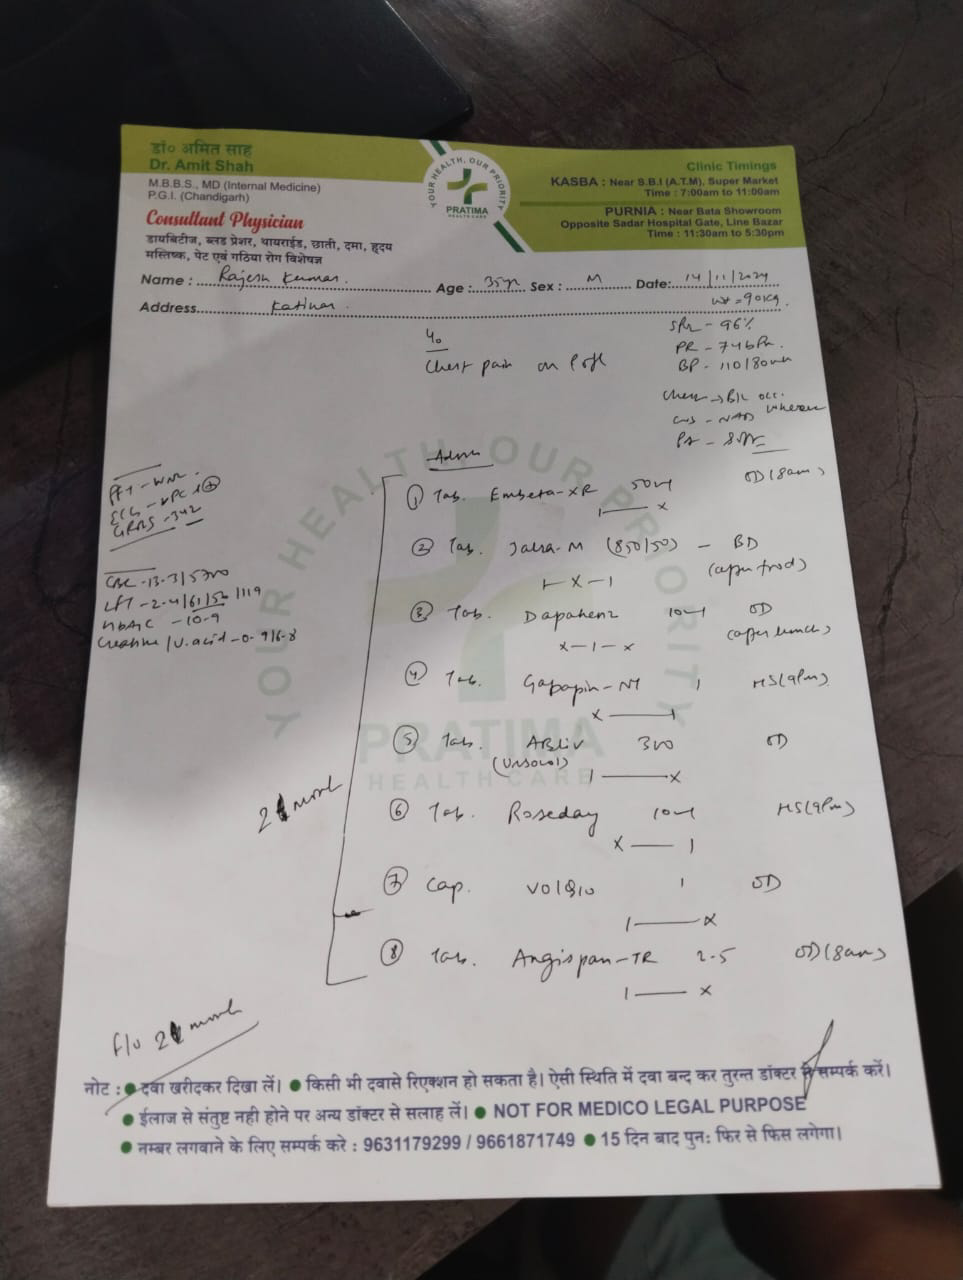 डॉ० अमित साह
Dr. Amit Shah
M.B.B.S., MD (Internal Medicine)
P.G.I. (Chandigarh)
Consultant Physician
डायबिटीज, ब्लड प्रेशर, थायराईड, छाती, दमा, हृदय
मस्तिष्क, पेट एवं गठिया रोग विशेषज्ञ
YOUR HEALTH, OUR PRIORITY
PRATIMA
HEALTH CARE
Clinic Timings
KASBA : Near S.B.I (A.T.M), Super Market
Time : 7:00am to 11:00am
PURNIA : Near Bata Showroom
Opposite Sadar Hospital Gate, Line Bazar
Time : 11:30am to 5:30pm
Name : Rajesh Kumar. Age : 35yr Sex : M Date: 14/11/2024
Address Katihar.
wt = 90kg.
Chest pain on
- 96%
PR - 74bpm.
BP - 110/80
- NAD
PFT - WNL.
GRBS - 342
CBC - 13.3/5700
LFT - 2.4/61/52/119
HbA1C - 10.9
Creatine / U.acid - 0.9/6.8
Advise
① Tab. Embeta-XR 50 OD (8am)
1 — x
② Tab. Jalra-M (850/50) - BD
(after food)
1 - x - 1
③ Tab. 10 OD
(after lunch)
x - 1 - x
④ Tab. Gabapin-NT 1 HS (9Pm)
x — 1
⑤ Tab. 300 OD
1 — x
⑥ Tab. Roseday 10 HS (9Pm)
x — 1
⑦ Cap. 1 OD
1 — x
⑧ Tab. Angispan-TR 2.5 OD (8am)
1 — x
2 month
F/u 2 month
YOUR HEALTH, OUR PRIORITY
PRATIMA
HEALTH CARE
नोट : ● दवा खरीदकर दिखा लें। ● किसी भी दवासे रिएक्शन हो सकता है। ऐसी स्थिति में दवा बन्द कर तुरन्त डॉक्टर से सम्पर्क करें।
● ईलाज से संतुष्ट नही होने पर अन्य डॉक्टर से सलाह लें। ● NOT FOR MEDICO LEGAL PURPOSE
● नम्बर लगवाने के लिए सम्पर्क करे : 9631179299 / 9661871749 ● 15 दिन बाद पुनः फिर से फिस लगेगा।